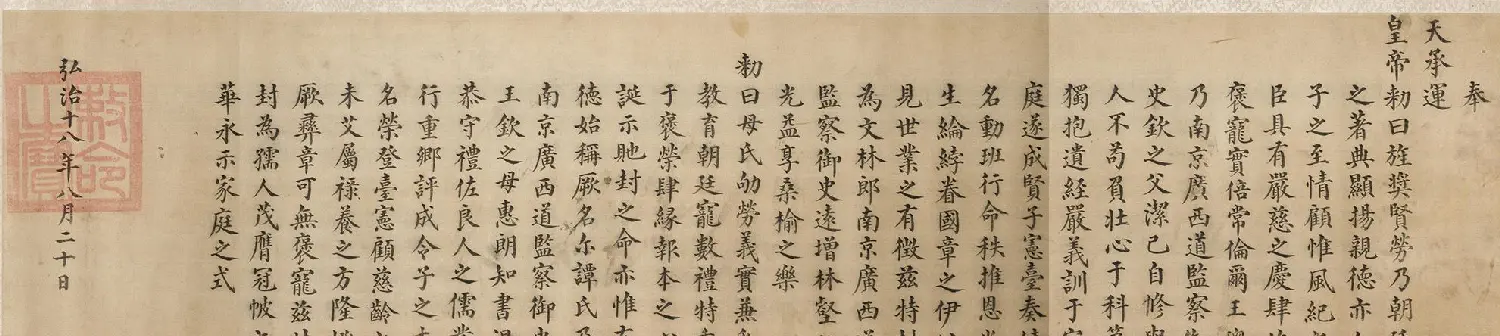 奉
天承運
皇帝勅曰旌奨賢勞乃朝
之著典顯揚親徳亦
子之至情顧惟風紀
臣具有嚴慈之慶肆
褒寵實倍常倫爾王
乃南京廣西道監察
史欽之父潔己自修
人不苟負壯心于科
獨抱遺經嚴義訓于
庭遂成賢子憲臺奏
名動班行命秩推恩
生綸綍眷國章之伊
見世業之有徴兹特
為文林郎南京廣西
監察御史逺增林壑
光益享桑榆之樂
勅曰母氏劬勞義實兼
教育朝廷寵數禮特
于褒榮肆縁報本之
誕示貤封之命亦惟
徳始稱厥名尓譚氏
南京廣西道監察御
王欽之母惠朗知書
恭守禮佐良人之儒
行重鄉評成令子之
名榮登臺憲顧慈齡
未艾屬禄養之方隆
厥彞章可無褒寵兹
封為孺人茂膺冠帔
華永示家庭之式
弘治十八年八月二十日
勅命
之寳